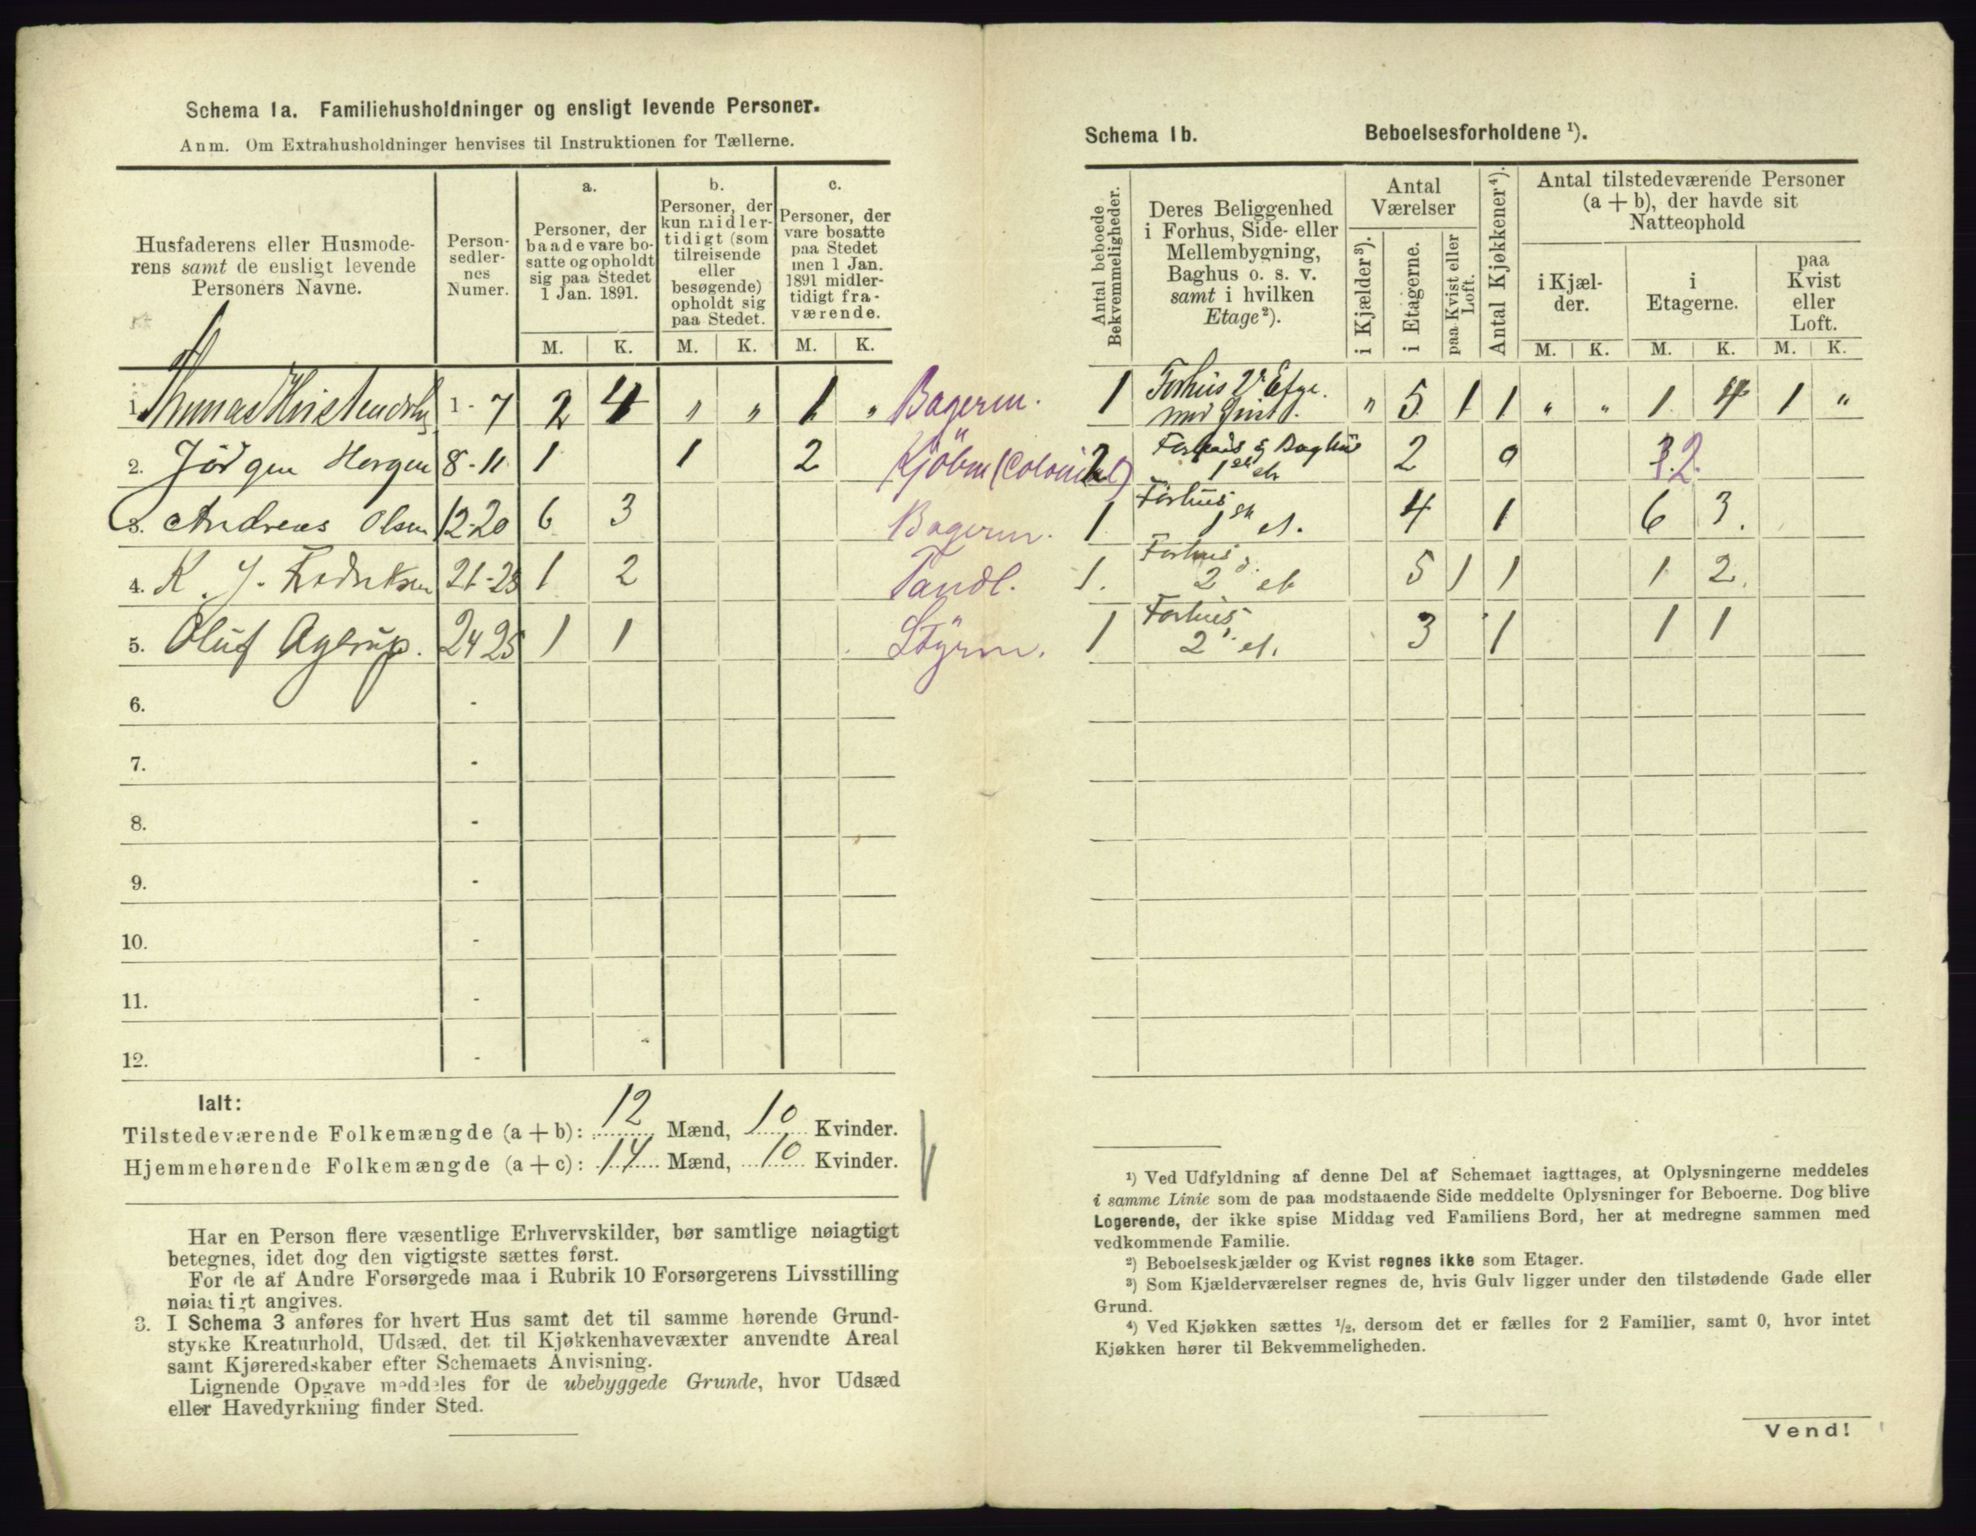 Schema 1a. Familiehusholdninger og ensligt levende Personer.
Anm. Om Extrahusholdninger henvises til Instruktionen for Tællerne.
Husfaderens eller Husmode-
rens samt de ensligt levende
Personers Navne.
Person-
sedler-
nes
Numer.
a.
Personer, der
baade vare bo-
satte og opholdt
sig paa Stedet
1 Jan. 1891.
b.
Personer, der
kun midler-
tidigt (som
tilreisende
eller
besøgende)
opholdt sig
paa Stedet.
c.
Personer, der
vare bosatte
paa Stedet
men 1 Jan.
1891 midler-
tidigt fra-
værende.
M. K. M. K. M. K.
1. Thomas 1 - 7 2 4 " " 1 " Bagerm.
2. Jørgen Horgen 8 - 11 1 1 2 Kjöbm (Colonial)
3. Andreas Olsen 12-20 6 3 Bagerm.
4. K. J. Fredriksen 21-23 1 2 Tandl.
5. Oluf Agerup. 24 25 1 1 Styrm.
6. -
7. -
8. -
9. -
10. -
11. -
12. -
Ialt:
Tilstedeværende Folkemængde (a + b): 12 Mænd, 10 Kvinder.
Hjemmehørende Folkemængde (a + c): 14 Mænd, 10 Kvinder.
Har en Person flere væsentlige Erhvervskilder, bør samtlige nøiagtigt
betegnes, idet dog den vigtigste sættes først.
For de af Andre Forsørgede maa i Rubrik 10 Forsørgerens Livsstilling
nøiagtigt angives.
3. I Schema 3 anføres for hvert Hus samt det til samme hørende Grund-
stykke Kreaturhold, Udsæd, det til Kjøkkenhavevæxter anvendte Areal
samt Kjøreredskaber efter Schemaets Anvisning.
Lignende Opgave meddeles for de ubebyggede Grunde, hvor Udsæd
eller Havedyrkning finder Sted.
Schema 1b. Beboelsesforholdene ¹).
Antal beboede
Bekvemmeligheder.
Deres Beliggenhed
i Forhus, Side- eller
Mellembygning,
Baghus o. s. v.
samt i hvilken
Etage²).
Antal
Værelser
i Kjælder³).
i Etagerne.
paa Kvist eller
Loft.
Antal Kjøkkener⁴).
Antal tilstedeværende Personer
(a + b), der havde sit
Natteophold
i Kjæl-
der.
i
Etagerne.
paa
Kvist
eller
Loft.
M. K. M. K. M. K.
1 Forhus 2' Etge.
" 5 1 1 " " 1 4 1 "
2 Forhus & Baghus
1ste et 2 0 2
1 Forhus
1ste et. 4 1 6 3.
1. Forhus
2 et 5 1 1 1 2.
1 Forhus
2 et. 3 1 1 1
¹) Ved Udfyldning af denne Del af Schemaet iagttages, at Oplysningerne meddeles
i samme Linie som de paa modstaaende Side meddelte Oplysninger for Beboerne. Dog blive
Logerende, der ikke spise Middag ved Familiens Bord, her at medregne sammen med
vedkommende Familie.
²) Beboelseskjælder og Kvist regnes ikke som Etager.
³) Som Kjælderværelser regnes de, hvis Gulv ligger under den tilstødende Gade eller
Grund.
⁴) Ved Kjøkken sættes ¹/₂, dersom det er fælles for 2 Familier, samt 0, hvor intet
Kjøkken hører til Bekvemmeligheden.
Vend!